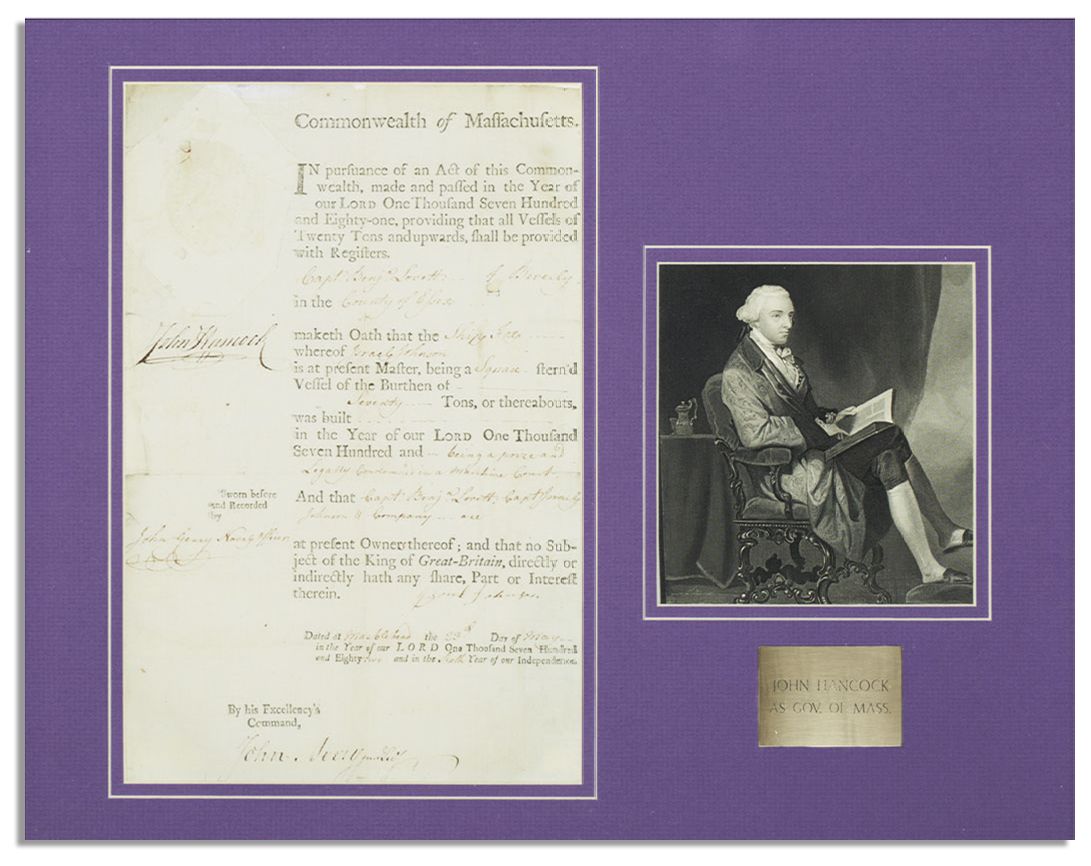 Commonwealth of Maſſachuſetts.
IN purſuance of an Act of this Common-
wealth, made and paſſed in the Year of
our LORD One Thouſand Seven Hundred
and Eighty-one, providing that all Veſſels of
Twenty Tons and upwards, ſhall be provided
with Regiſters.
Capt. Benj.ª Lovett of Beverly
in the County of Eſsex
John Hancock
maketh Oath that the Ship
whereof Iſrael Johnson
is at preſent Maſter, being a Square ſtern'd
Veſſel of the Burthen of
Seventy Tons, or thereabouts,
was built
in the Year of our LORD One Thouſand
Seven Hundred and being a prize and
Legally Condem'd in a Maritime Court
Sworn before
and Recorded
by
And that Capt. Benj.ª Lovett, Capt Iſrael
Johnson & Company are
at preſent Owners thereof; and that no Sub-
ject of the King of Great-Britain, directly or
indirectly hath any ſhare, Part or Intereſt
therein.
Iſrael Johnson
Dated at Marblehead the 23th Day of May
in the Year of our LORD One Thouſand Seven Hundred
and Eighty two and in the Sixth Year of our Independence.
By his Excellency's
Command,
John Avery
JOHN HANCOCK
AS GOV. OF MASS.